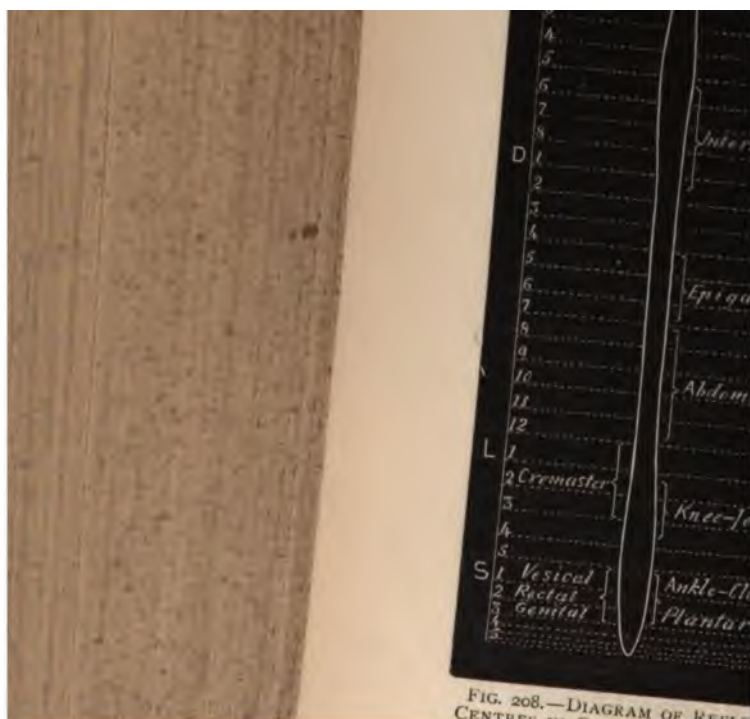 4
5
6
7
8
D 1
2
3
4
5
6
7
8
9
10
11
12
L 1
2 Cremaster
3
4
5
S 1 Vesical
2 Rectal
3 Genital
Inter
Epiga
Abdom
Knee-Je
Ankle-Cl
Plantar
FIG. 208.—DIAGRAM OF